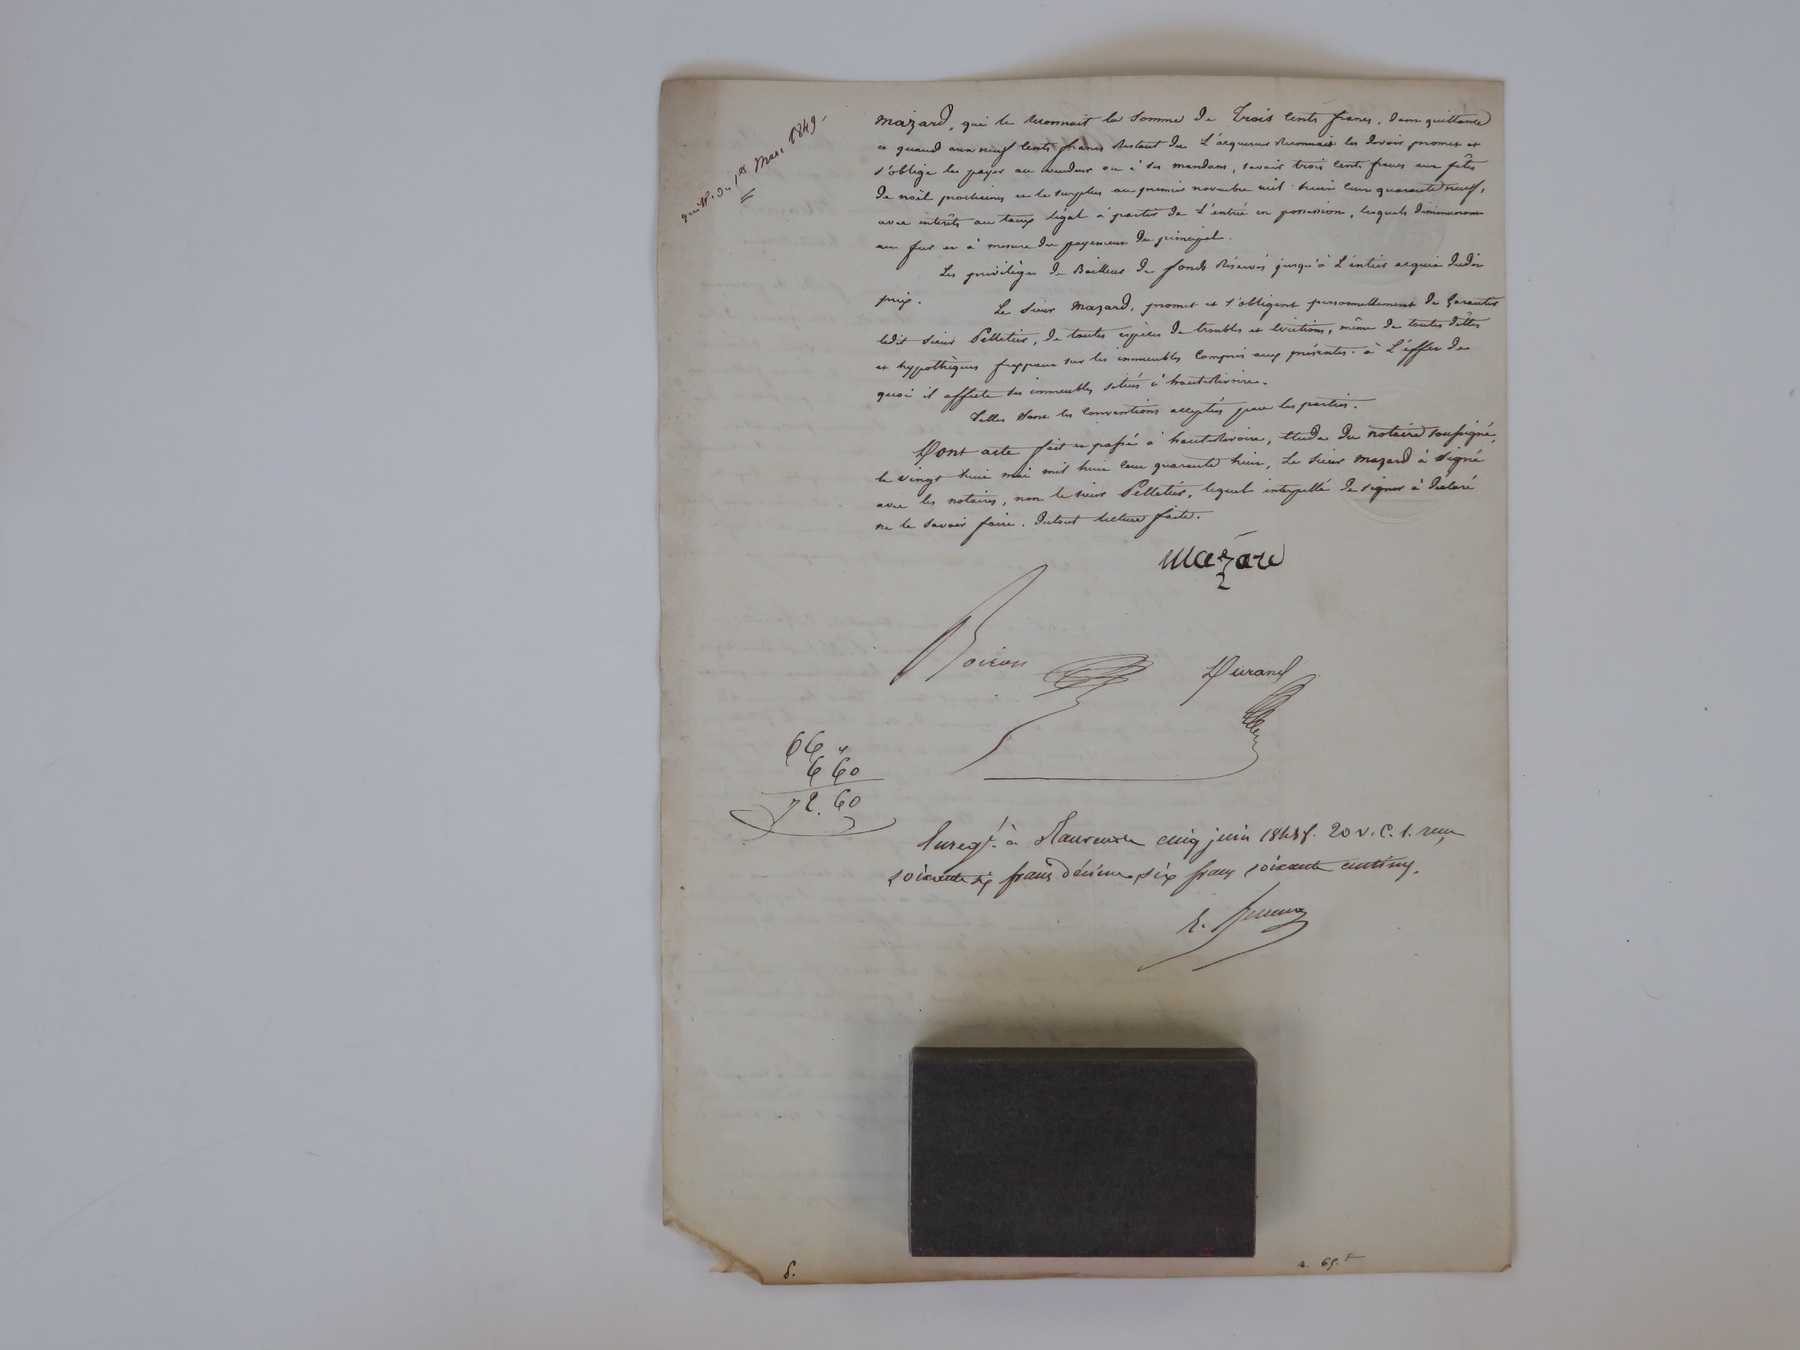 quitt. du 1er Mars 1849.
Mazard, qui le reconnait la somme de Trois cents francs, dont quittance
et quand aux neuf cents francs restant du L'acquereur reconnait les devoir promet et
s'oblige les payer au vendeur ou à ses mandans, savoir trois cents francs aux fêtes
de noël prochaines et le surplus au premier novembre mil huit cent quarante neuf,
avec intérêts au taux légal à partir de L'entrée en possession, lesquels diminueront
au fur et à mesure du payement du principal.
Les privilèges de Bailleur de fonds réservés jusqu'à L'entier acquit dudit
prix.
Le sieur Mazard, promet et s'obligent personnellement de garantir
ledit sieur Pelletier, de toutes espèces de troubles et évictions, même de toutes dêttes
et hypothèques frappant sur les immeubles compris aux présentes. à L'éffet de
quoi il affecte ses immeubles situés à hauterivoire.
Telles sont les conventions acceptées par les parties.
Dont acte fait et passé à hauterivoire, étude du notaire soussigné,
le vingt huit mai mil huit cent quarante huit, Le sieur Mazard à signé
avec les notaires, non le sieur Pelletier, lequel interpellé de signer à déclaré
ne le savoir faire. Dutout lecture faite.
Mazard
Boiron
Durand
66 "
6 60
72. 60
Enregt. à cinq juin 1848 f. 20 v. C. 1. reçu
soixante six francs décime six francs soixante centimes.
6.
r. 65.f